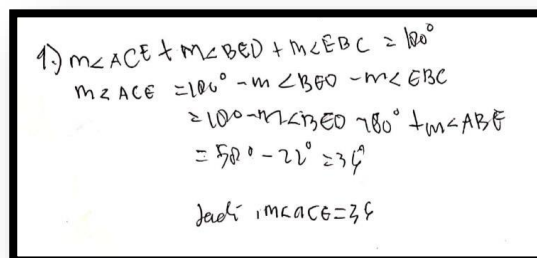 1.) m∠ACE + m∠BED + m∠EBC = 180°
m∠ACE = 180° - m∠BED - m∠EBC
= 180 - m∠BED - 180° + m∠ABE
= 58° - 22° = 36°
Jadi, m∠ACE = 36